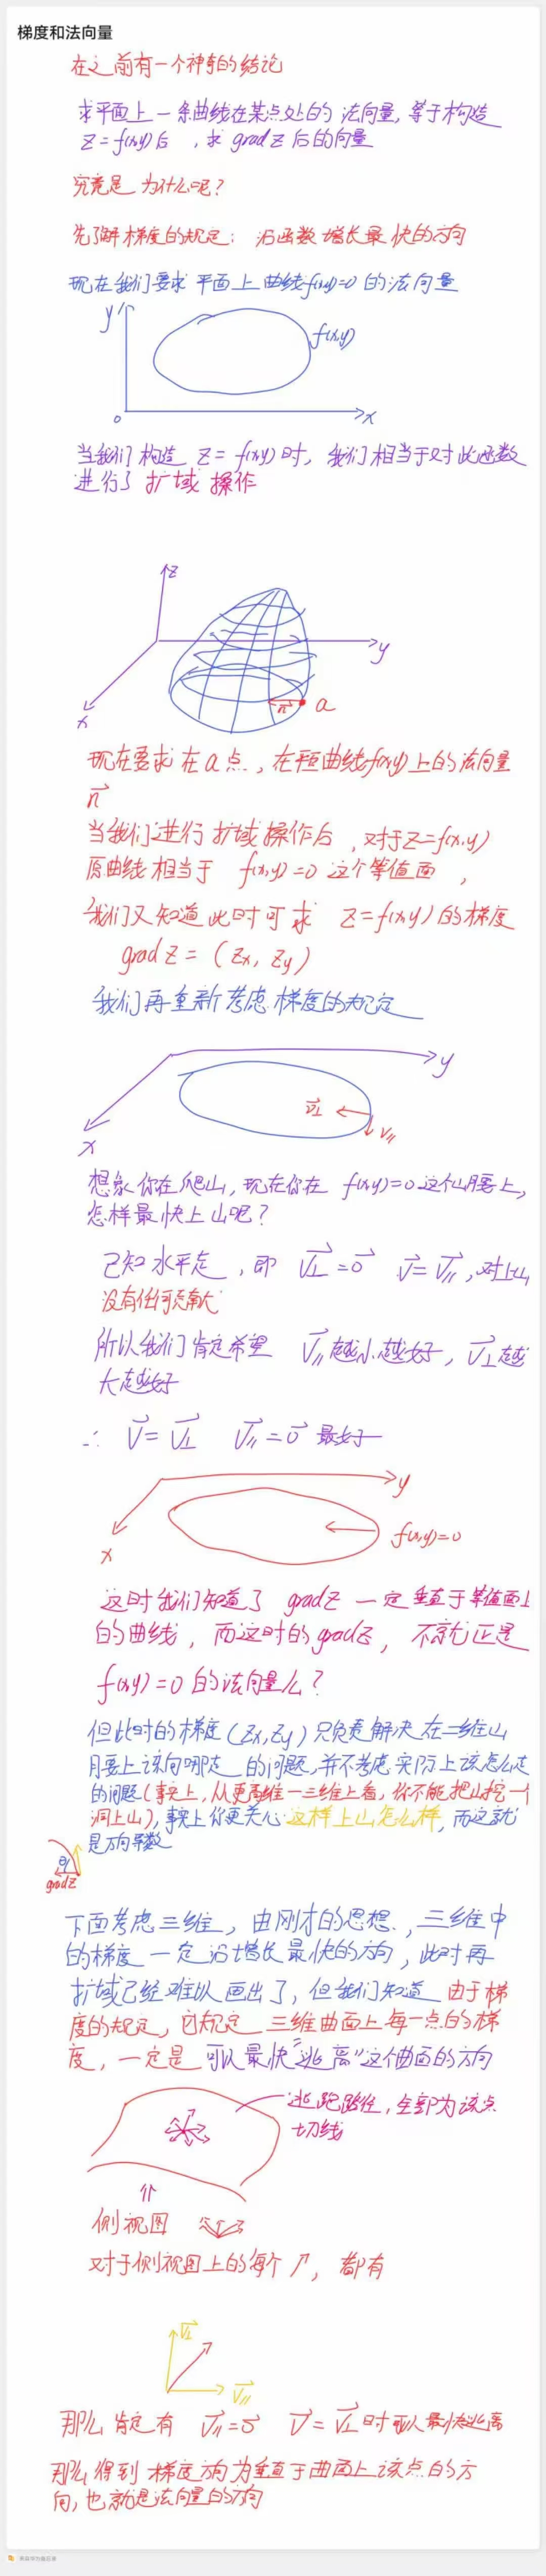 梯度和法向量
在之前有一个神奇的结论
求平面上一条曲线在某点处的法向量,等于构造
z=f(x,y)后 ,求 grad z 后的向量
究竟是 为什么呢?
先了解梯度的规定: 沿函数增长最快的方向
现在我们要求 平面上 曲线f(x,y)=0 的法向量
y
f(x,y)
o
x
当我们构造 z=f(x,y)时, 我们相当于对此函数
进行了 扩域 操作
z
y
x
n
a
现在要求在a点,在 曲线f(x,y)上的法向量
n
当我们进行扩域操作后 ,对于z=f(x,y)
原曲线相当于 f(x,y)=0 这个等值面 ,
我们又知道此时可求 z=f(x,y)的梯度
grad z = (zx, zy)
我们再重新考虑梯度的规定
y
x
V⊥
V∥
想象你在爬山,现在你在 f(x,y)=0这个山腰上,
怎样最快上山呢?
已知水平走 ,即 V⊥=0 V=V∥,对上山
没有任何贡献
所以我们肯定希望 V∥越小越好, V⊥越
大越好
∴ V=V⊥ V∥=0 最好
y
x
f(x,y)=0
这时我们知道了 grad z 一定垂直于等值面上
的曲线 ,而这时的grad z, 不就正是
f(x,y)=0 的法向量么?
但此时的梯度(zx,zy)只负责解决在二维山
腰上该向哪走 的问题,并不考虑实际上该怎么走
的问题(事实上,从更高维一三维上看,你不能把山挖一个
洞上山),事实上你更关心 这样上山怎么样, 而这就
是方向导数
grad z
下面考虑三维 ,由刚才的思想 , 三维中
的梯度一定沿增长最快的方向 ,此时再
扩域已经难以画出了, 但我们知道 由于梯
度的规定,它规定 三维曲面上每一点的梯
度, 一定是 可以最快“逃离”这个曲面的方向
逃跑路径,全部为该点
切线
侧视图
对于侧视图上的每个↗, 都有
V⊥
V∥
那么肯定有 V∥=0 V=V⊥时可以最快逃离
那么得到 梯度方向为垂直于曲面上该点的方
向,也就是法向量的方向